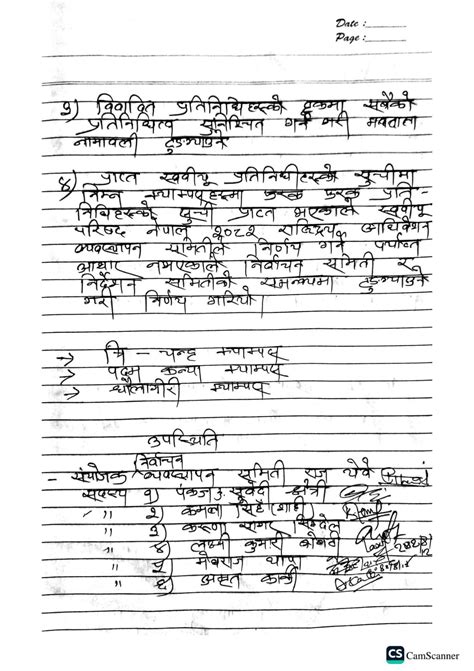 Date :
Page :
३) विवादित प्रतिनिधिहरुको हकमा सबैको
प्रतिनिधित्व सुनिश्चित गर्ने गरी मतदाता
नामावली टुङ्ग्याउने
४) प्राप्त स्ववियू प्रतिनिधीहरुको सुचीमा
निम्न क्याम्पसहरुमा फरक फरक प्रति-
निधिहरुको सुची प्राप्त भएकाले स्ववियू
परिषद नेपाल २०८२ राष्ट्रिय अधिवेशन
व्यवस्थापन समितीले निर्णय गर्न पर्याप्त
आधार नभएकाले निर्वाचन समिती र
निर्देशन समितीको समन्वयमा टुङ्ग्याउने
गरी निर्णय गरियो
→ त्रि - चन्द्र क्याम्पस
→ पद्म कन्या क्याम्पस
→ धौलागिरी क्याम्पस
उपस्थिति
निर्वाचन
- संयोजक व्यवस्थापन समिती राज
सदस्य १) पंकज कु. सुवेदी क्षेत्री
" २) कमला सिंह (शाही)
" ३) करुणा सागर सिग्देल
" ४) लक्ष्मी कुमारी
" ५) मेघराज थापा
" ६) अमृत कार्की
CS CamScanner